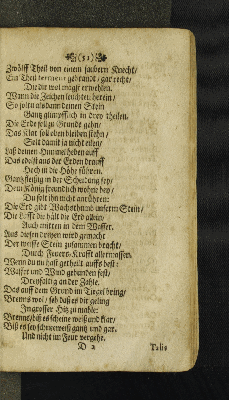 (51)
Zwölff Theil von einem saubern Knecht/
Ein Theil ferment gebrandt/ gar recht/
Die dir wol magst erwehlen.
Wann die Zeichen leuchten herein/
So soltu alsdann deinen Stein
Gantz glimpfflich in drey theilen.
Die Erde soll zu Grunde gehn/
Das Klar soll oben bleiben stehn/
Solt damit ja nicht eilen/
Laß deinen Himmel heben auff
Das edelst aus der Erden drauff
Hoch in die Höhe führen.
Gantz fleißig in der Scheidung sey/
Dem König freundlich wohne bey/
Du solt ihn nicht anrühren:
Die Erd gibt Wachsthumb unserm Stein/
Die Lufft du hält die Erd allein/
Auch mitten in dem Wasser.
Aus diesen dreyen wird gemacht
Der weisse Stein zusammen bracht/
Durch Feuers-Krafft allermassen.
Wenn du nu hast getheilt auffs best:
Wasser und Wind gebunden fest/
Dreyfaltig an der Zahle.
Das auff dem Grund im Tiegel bring/
Brenns wol/ seh daß es dir geling
In grosser Hitz zu mahle:
Brenns/ biß es scheine weiß und klar/
Biß es sey schneeweiß gantz und gar.
Und nicht im Feur vergehe.
D 2 Talis